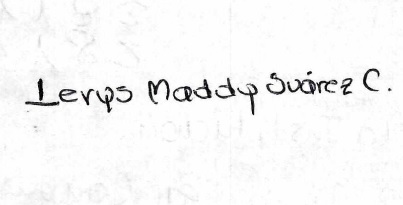 Lerys Maddy Suárez C.